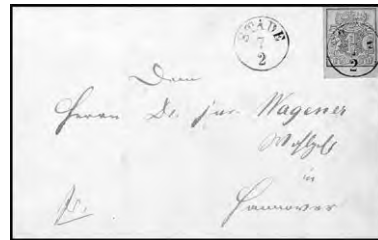 STADE
7
2
Dem
Herrn Dr. jur. Wagener
in
Hannover